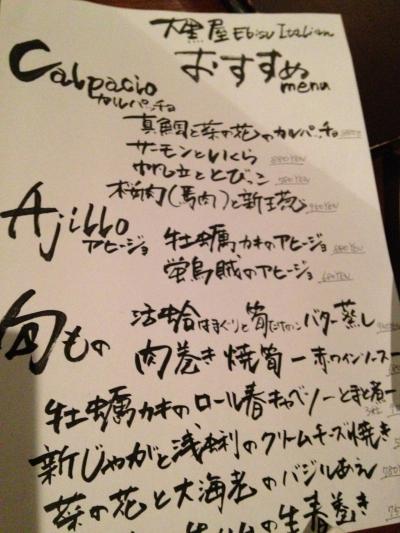 大星屋 Ebisu Italian
おすすめ
menu
Calpacio
カルパッチョ
真鯛と菜の花のカルパッチョ
サーモンといくら 880YEN
帆立ととびこ 780YEN
桜肉(馬肉)と新玉葱 980YEN
Ajillo
アヒージョ
牡蠣カキのアヒージョ 680YEN
蛍烏賊のアヒージョ 680YEN
旬もの
活蛤はまぐりと筍たけのこバター蒸し
肉巻き焼筍ー赤ワインソースー
牡蠣カキのロール春キャベツーとまと煮ー
新じゃがと浅利のクリームチーズ焼き
菜の花と大海老のバジルあえ 780
の生春巻き